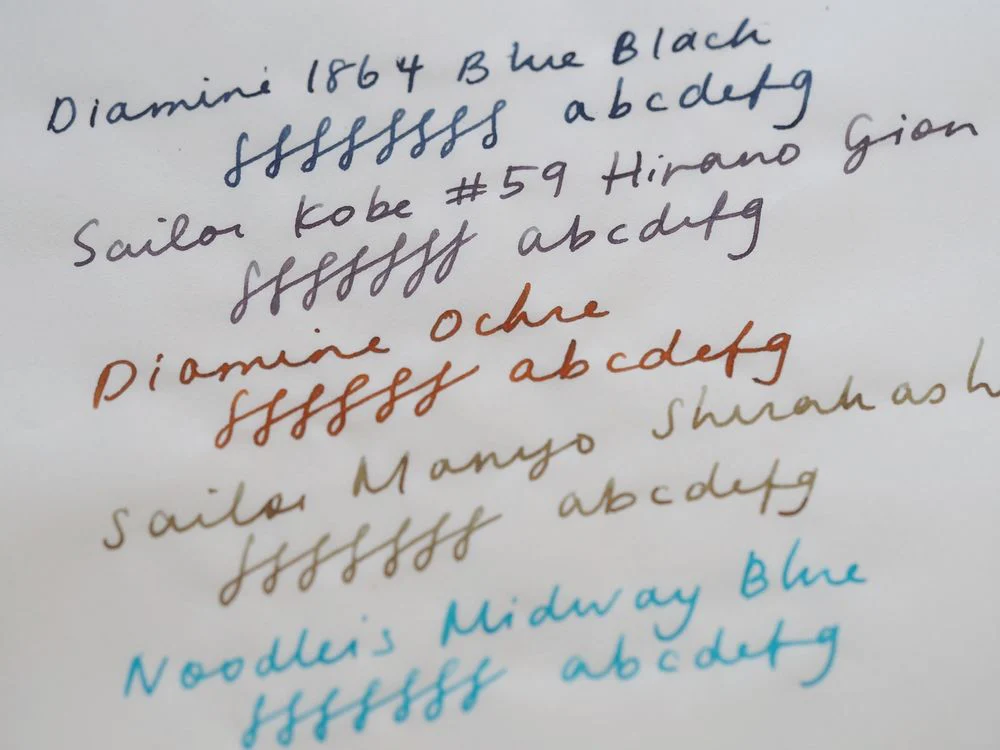 Diamine 1864 Blue Black
ffffffff abcdefg
Sailor Kobe #59 Hirano Gion
fffffff abcdefg
Diamine Ochre
ffffff abcdefg
Sailor Manyo Shirakash
fffffff abcdefg
Noodler's Midway Blue
fffffff abcdefg